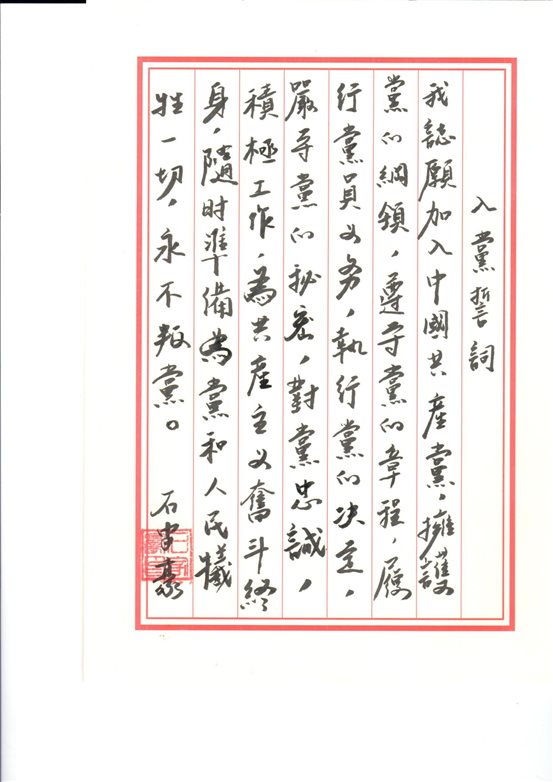 入黨誓詞
我誌願加入中國共産黨，擁護
黨的綱領，遵守黨的章程，履
行黨員义务，執行黨的决定，
嚴守黨的秘密，對黨忠誠，
積極工作，為共産主义奮斗終
身，隨时準備為黨和人民犧
牲一切，永不叛黨。 石